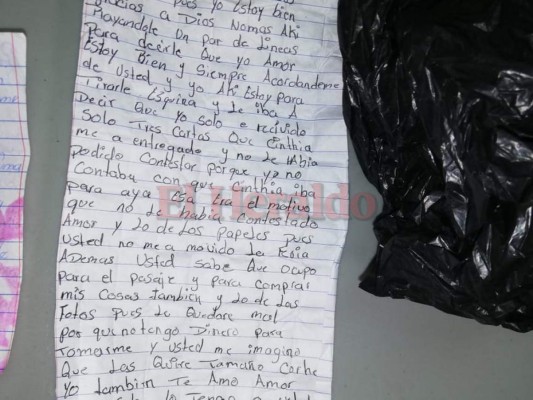 pues yo Estoy bien
Gracias a Dios Nomas Aki
Rayandole Un par de lineas
Para decirle Que yo Amor
Estoy Bien y Siempre Acordandome
de Usted y yo Aki Estoy Para
Tirarle Esquina y Le iba A
Decir Que yo solo e recivido
Solo Tres Cartas Que Cinthia
me a entregado y no le Abia
Podido Contestar porque yo no
Contaba con que Cinthia iba
Para aya Esa Era el motivo
que no le habia Contestado
Amor y Lo de Los Papeles pues
Usted no me a movido la
Ademas Usted sabe Que ocupo
Para el pasaje y para comprar
mis Cosas Tambien y Lo de Las
Fotos pues Le Quedare mal
por que no tengo Dinero Para
Tomarme y usted me imagino
Que Las Quire Tamaño Carne
Yo Tambien Te Amo Amor
Lo Tengo a
El Heraldo